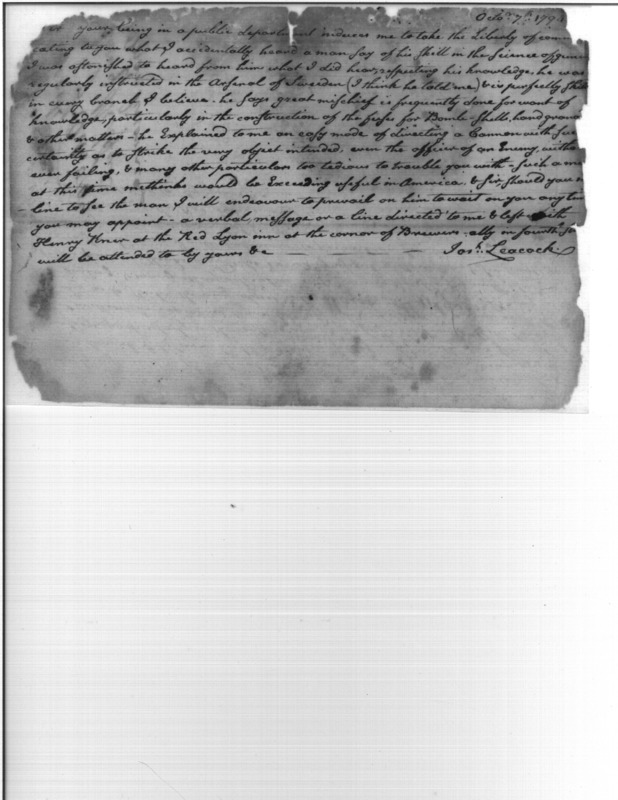 Octo. 7th. 179
Sr your being in a public department induces me to take the Liberty of comm
cating to you what I accidentally heard a man say of his skill in the science of gunn
I was astonished to heard from him what I did hear, respecting his knowledge. he was
regularly instructed in the Arsenal of Sweeden (I think he told me) & is perfectly skill
in every branch I believe. he says great mischief is frequently done for want of
knowledge, particularly in the construction of the fuses for Bomb-shells, hand grana
& other matters - he Explained to me an easy mode of directing a Cannon with suc
certainty as to strike the very object intended, even the officer of an Enemy, witho
ever failing, & many other particulars too tedious to trouble you with - such a m
at this time methinks would be Exceeding useful in America. & Sir, should you
line to see the man I will endeavour to prevail on him to wait on you any tim
you may appoint - a verbal message or a line directed to me & left with
Henry Kner at the Red Lyon inn at the cornor of Brewers-ally in fourth St
will be attended to by yours &c Josh. Leacock.